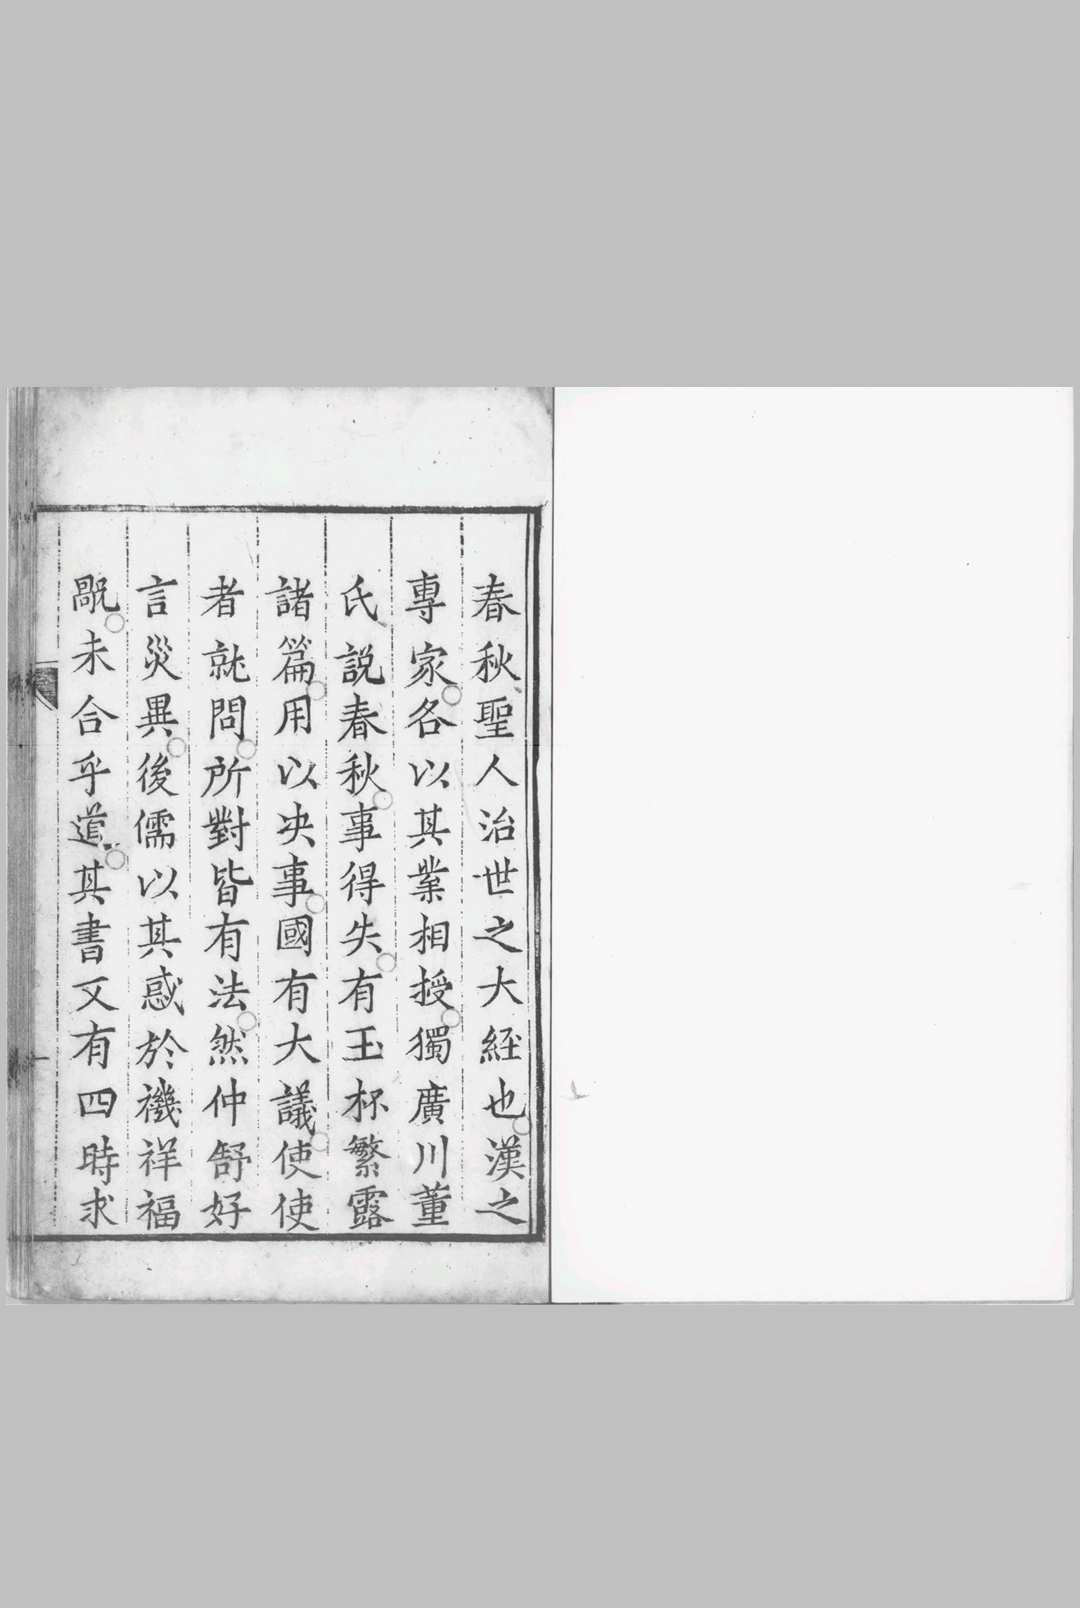 春秋聖人治世之大經也漢之
專家各以其業相授獨廣川董
氏説春秋事得失有玉杯繁露
諸篇用以决事國有大議使使
者就問所對皆有法然仲舒好
言災異後儒以其惑於禨祥福
毆未合乎道其書又有四時求